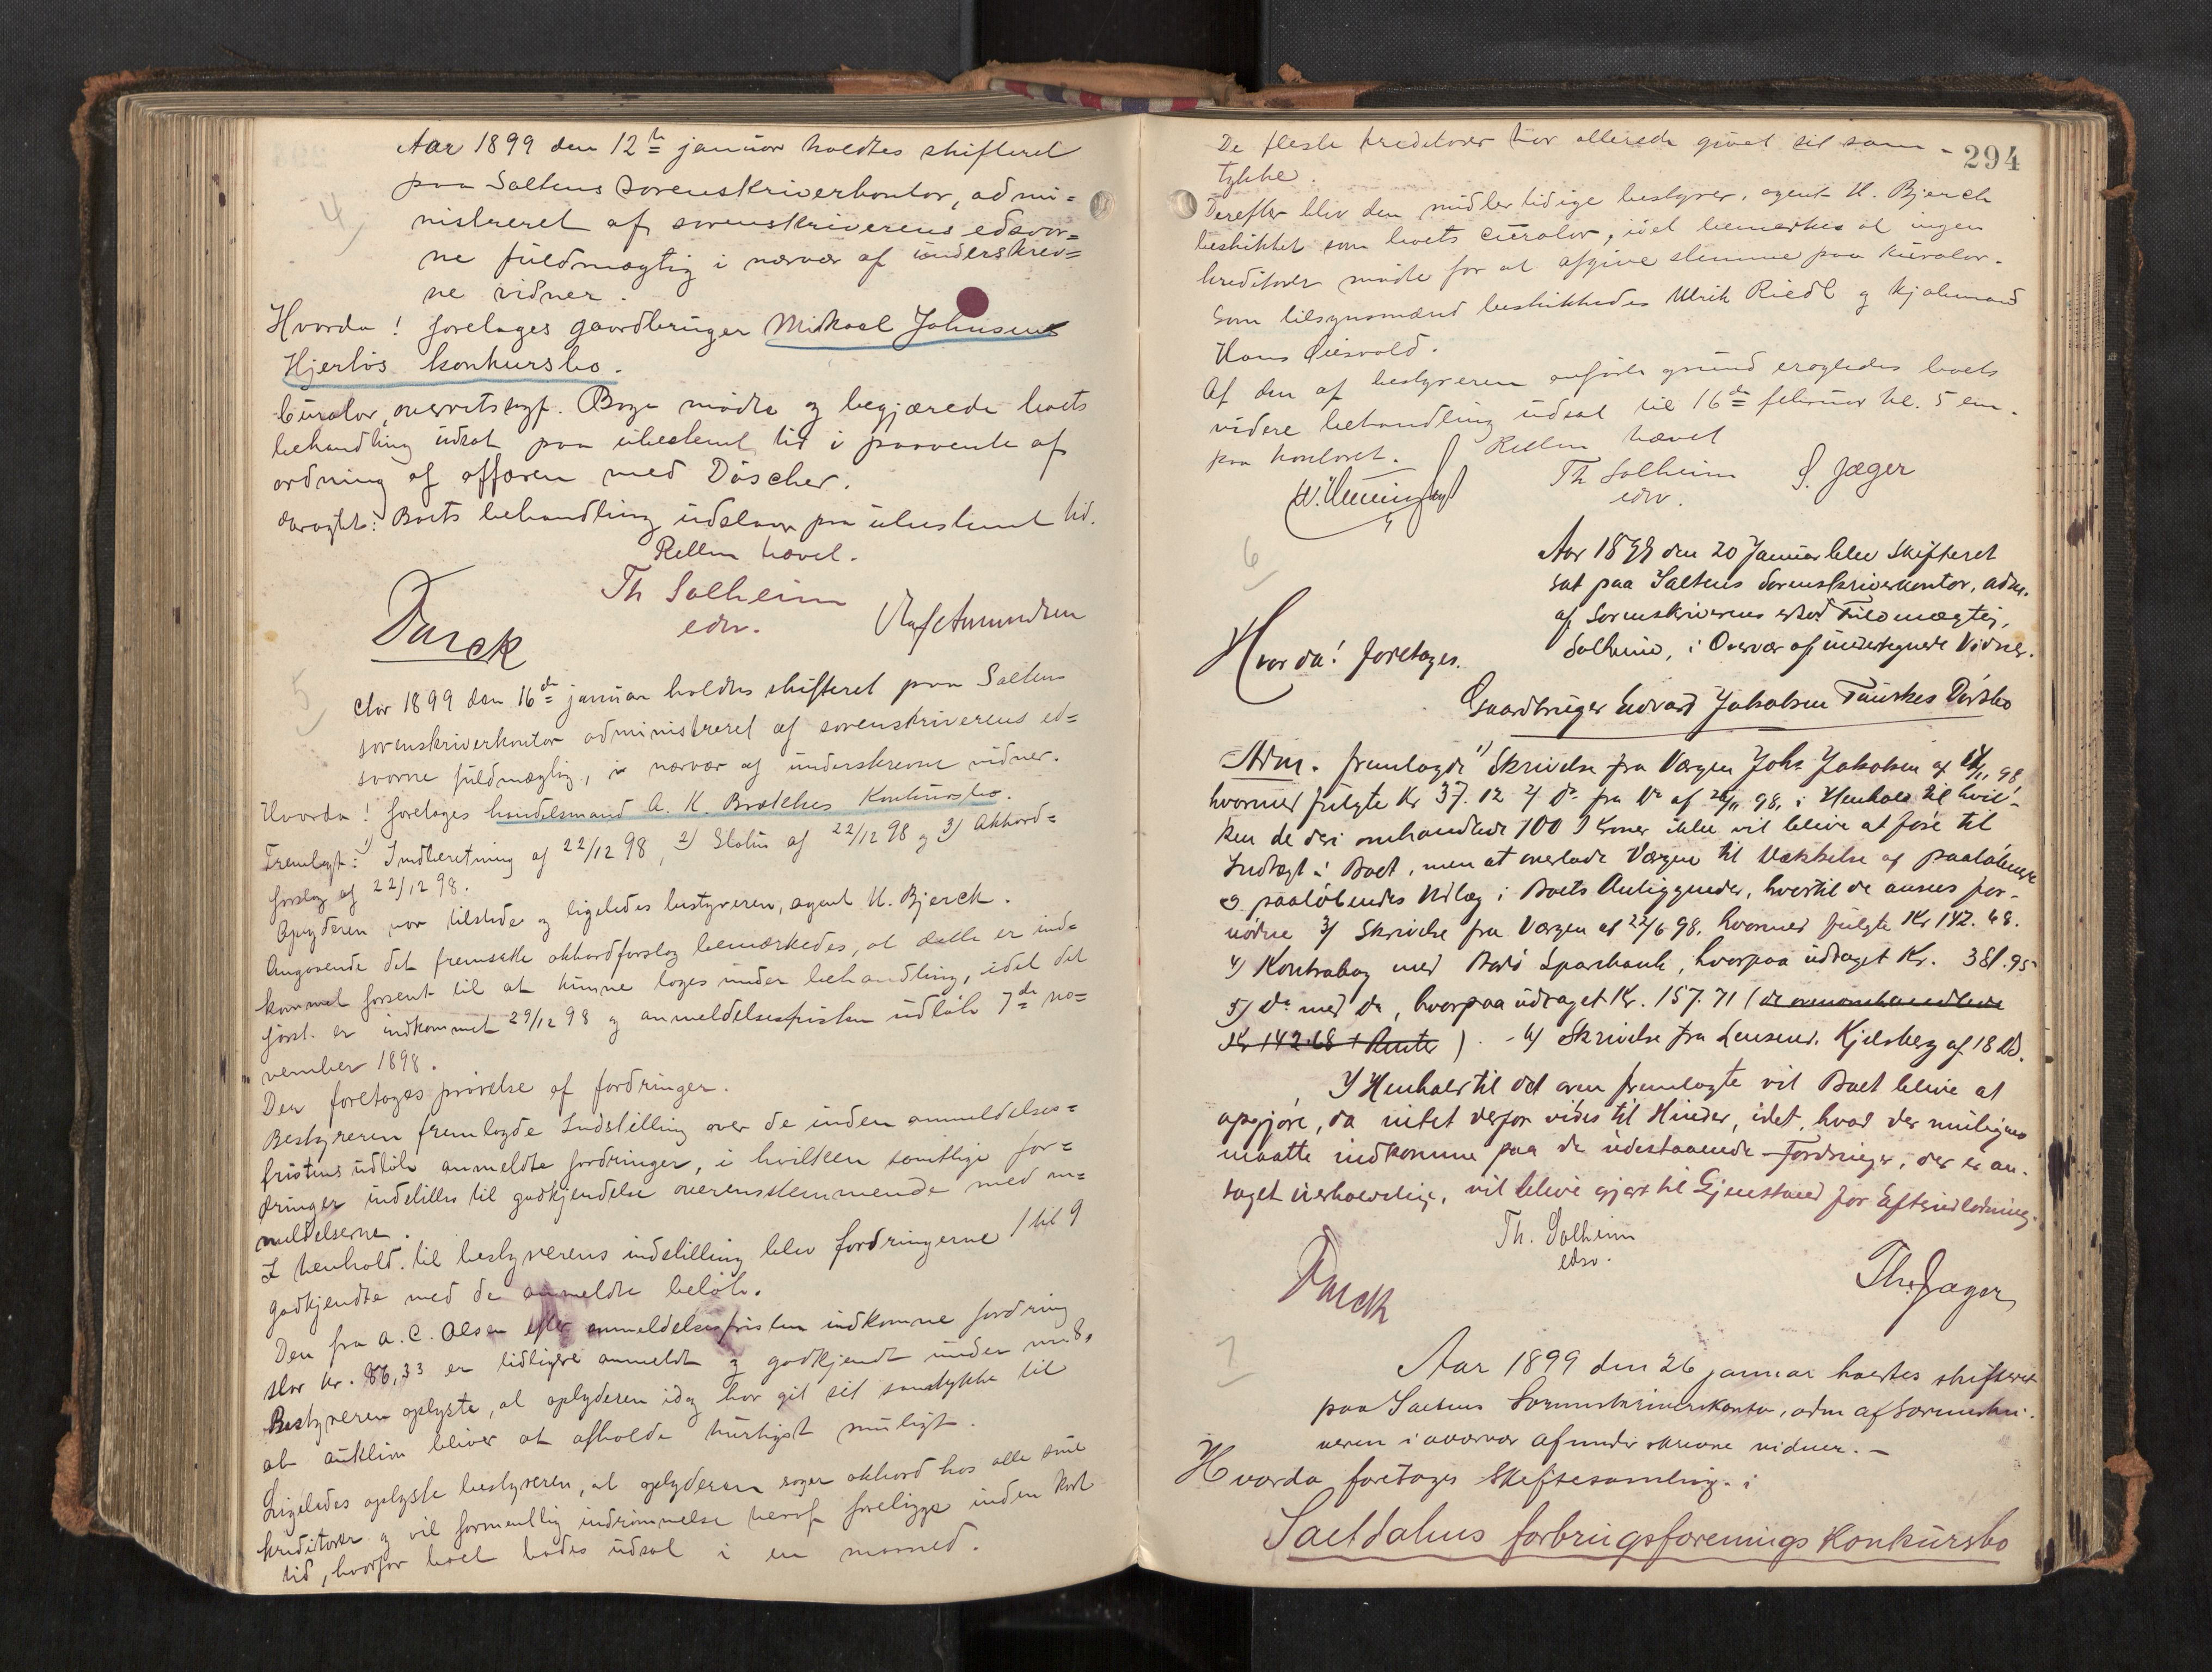 Aar 1899 den 12te januar holdtes skifteret
4)
paa Saltens sorenskriverkontor, admi=
nistreret af sorenskriverens edsvor=
ne fuldmægtig i nærvær af underskrev=
ne vidner.
Hvorda! foretages gaardbruger Mikael Johnsens
Hjertøs konkursbo.
Curator, overretssagf. Boye mødte og begjærede boets
behandling udsat paa ubestemt tid i paavente af
ordning af affæren med Döscher.
Eragtet: Boets behandling udstaar paa ubestemt tid.
Retten hævet.
Th Solheim
edsv.
Darck
Olaf Amundsen
5)
Aar 1899 den 16de januar holdtes skifteret paa Saltens
sorenskriverkontor administreret af sorenskriverens ed=
svorne fuldmægtig, i nærvær af underskrevne vidner.
Hvorda! foretages handelsmand A. K. Brækkes Konkursbo.
Fremlagt: 1) Indberetning af 22/12 98, 2) Status af 22/12 98 og 3) Akkord=
forslag af 22/12 98.
Opbyderen var tilstede og ligeledes bestyreren, agent H. Bjerck.
Angaaende det fremsatte akkordforslag bemærkedes, at dette er ind=
kommet forsent til at kunne tages under behandling, idet det
først er indkommet 29/12 98 og anmeldelsesfristen udløb 7de no=
vember 1898.
Der foretages prøvelse af fordringer.
Bestyreren fremlagde Indstilling over de inden anmeldelses=
fristens udløb anmeldte fordringer, i hvilken samtlige for=
dringer indstilles til godkjendelse overensstemmende med an=
meldelserne.
I henhold til bestyrerens indstilling blev fordringerne 1 til 9
godkjendte med de anmeldte beløb.
Den fra A. C. Olsen efter anmeldelsesfristen indkomne fordring
stor kr. 86,33 er tidligere anmeldt og godkjendt under nr. 8.
Bestyreren oplyste, at opbyderen idag har git sit samtykke til
at auktion bliver at afholde hurtigst muligt.
Ligeledes oplyste bestyreren, at opbyderen søger akkord hos alle sine
kreditorer og vil formentlig indrømmelse herpaa foreligge inden kort
tid, hvorfor boet bades udsat i en maaned.
294
De fleste kreditorer har allerede givet sit sam-
tykke.
Derefter blev den midlertidige bestyrer, agent H. Bjerck
beskikket som boets curator, idet bemærkes at ingen
kreditorer mødte for at afgive stemme paa kurator.
Som tilsynsmænd beskikkedes Ulrik Riedl og kjøbmand
Hans Qvisvold.
Af den af bestyreren anførte grund eragtedes boets
videre behandling udsat til 16de februar kl. 5 em.
paa kontoret. Retten hævet
Th Solheim
edsv.
S. Jæger
6)
Aar 1899 den 20 Januar blev Skifteret
sat paa Saltens Sorenskriverkontor, adm.
af Sorenskriverens edsv. Fuldmægtig,
Solheim, i Overvær af undertegnede Vidner.
Hvorda! foretages.
Gaardbruger Edvard Jakobsen Tuuskes Dødsbo
Adm. fremlagde 1) Skrivelse fra Værgen Johs Jakobsen af 98
hvormed fulgte Kr 37. 12 2) Do fra Do af 26/11 98, i Henhold til hvil-
ken de deri omhandlede 100 Kroner ikke vil blive at føre til
Indtægt i Boet, men at overlade Værgen til Dækkelse af paaløbne
og paaløbendes Udlæg i Boets Anliggender, hvortil de ansees for-
nødne 3) Skrivelse fra Værgen af 22/6 98, hvormed fulgte Kr 142. 68.
4) Kontrabog med Bodø Sparebank, hvorpaa udtaget Kr. 381.95
5) Do med Do, hvorpaa udtaget Kr. 157. 71 (de ovenomhandlede
Kr 142.68 + Renter). - 6) Skrivelse fra Lensmd. Kjelsberg af 18 ds.
I Henhold til det oven fremlagte vil Boet blive at
opgjøre, da intet derfor vides til Hinder, idet, hvad der muligens
maatte indkomme paa de udestaaende Fordringer, der er an-
taget uerholdelige, vil blive gjort til Gjenstand for Efterudlodning.
Th. Solheim
edsv.
Darck
Th. Jæger
7)
Aar 1899 den 26 januar holdtes skifteret
paa Saltens Sorenskriverkontor, adm af Sorenskri-
veren i overvær af underskrevne vidner. -
Hvorda foretages Skiftesamling i
Saltdalens forbrugsforenings Konkursbo